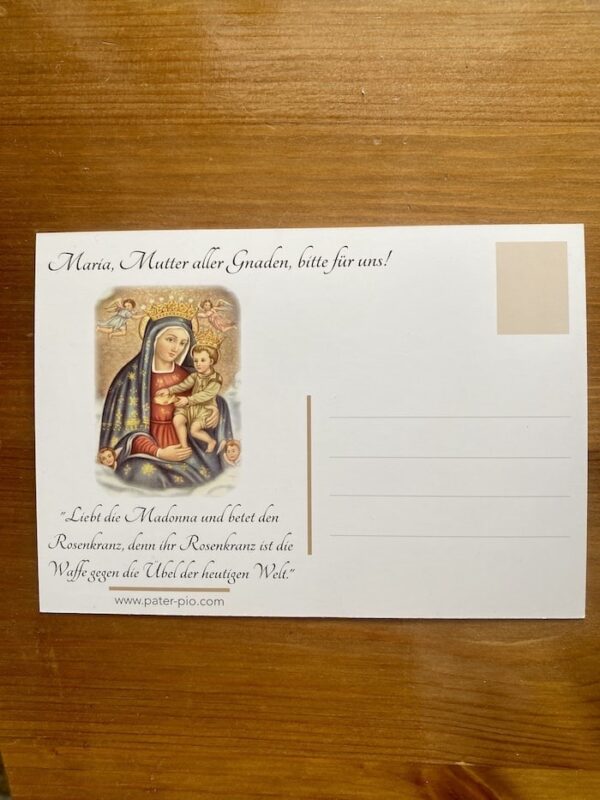 Maria, Mutter aller Gnaden, bitte für uns!
"Liebt die Madonna und betet den
Rosenkranz, denn ihr Rosenkranz ist die
Waffe gegen die Übel der heutigen Welt."
www.pater-pio.com